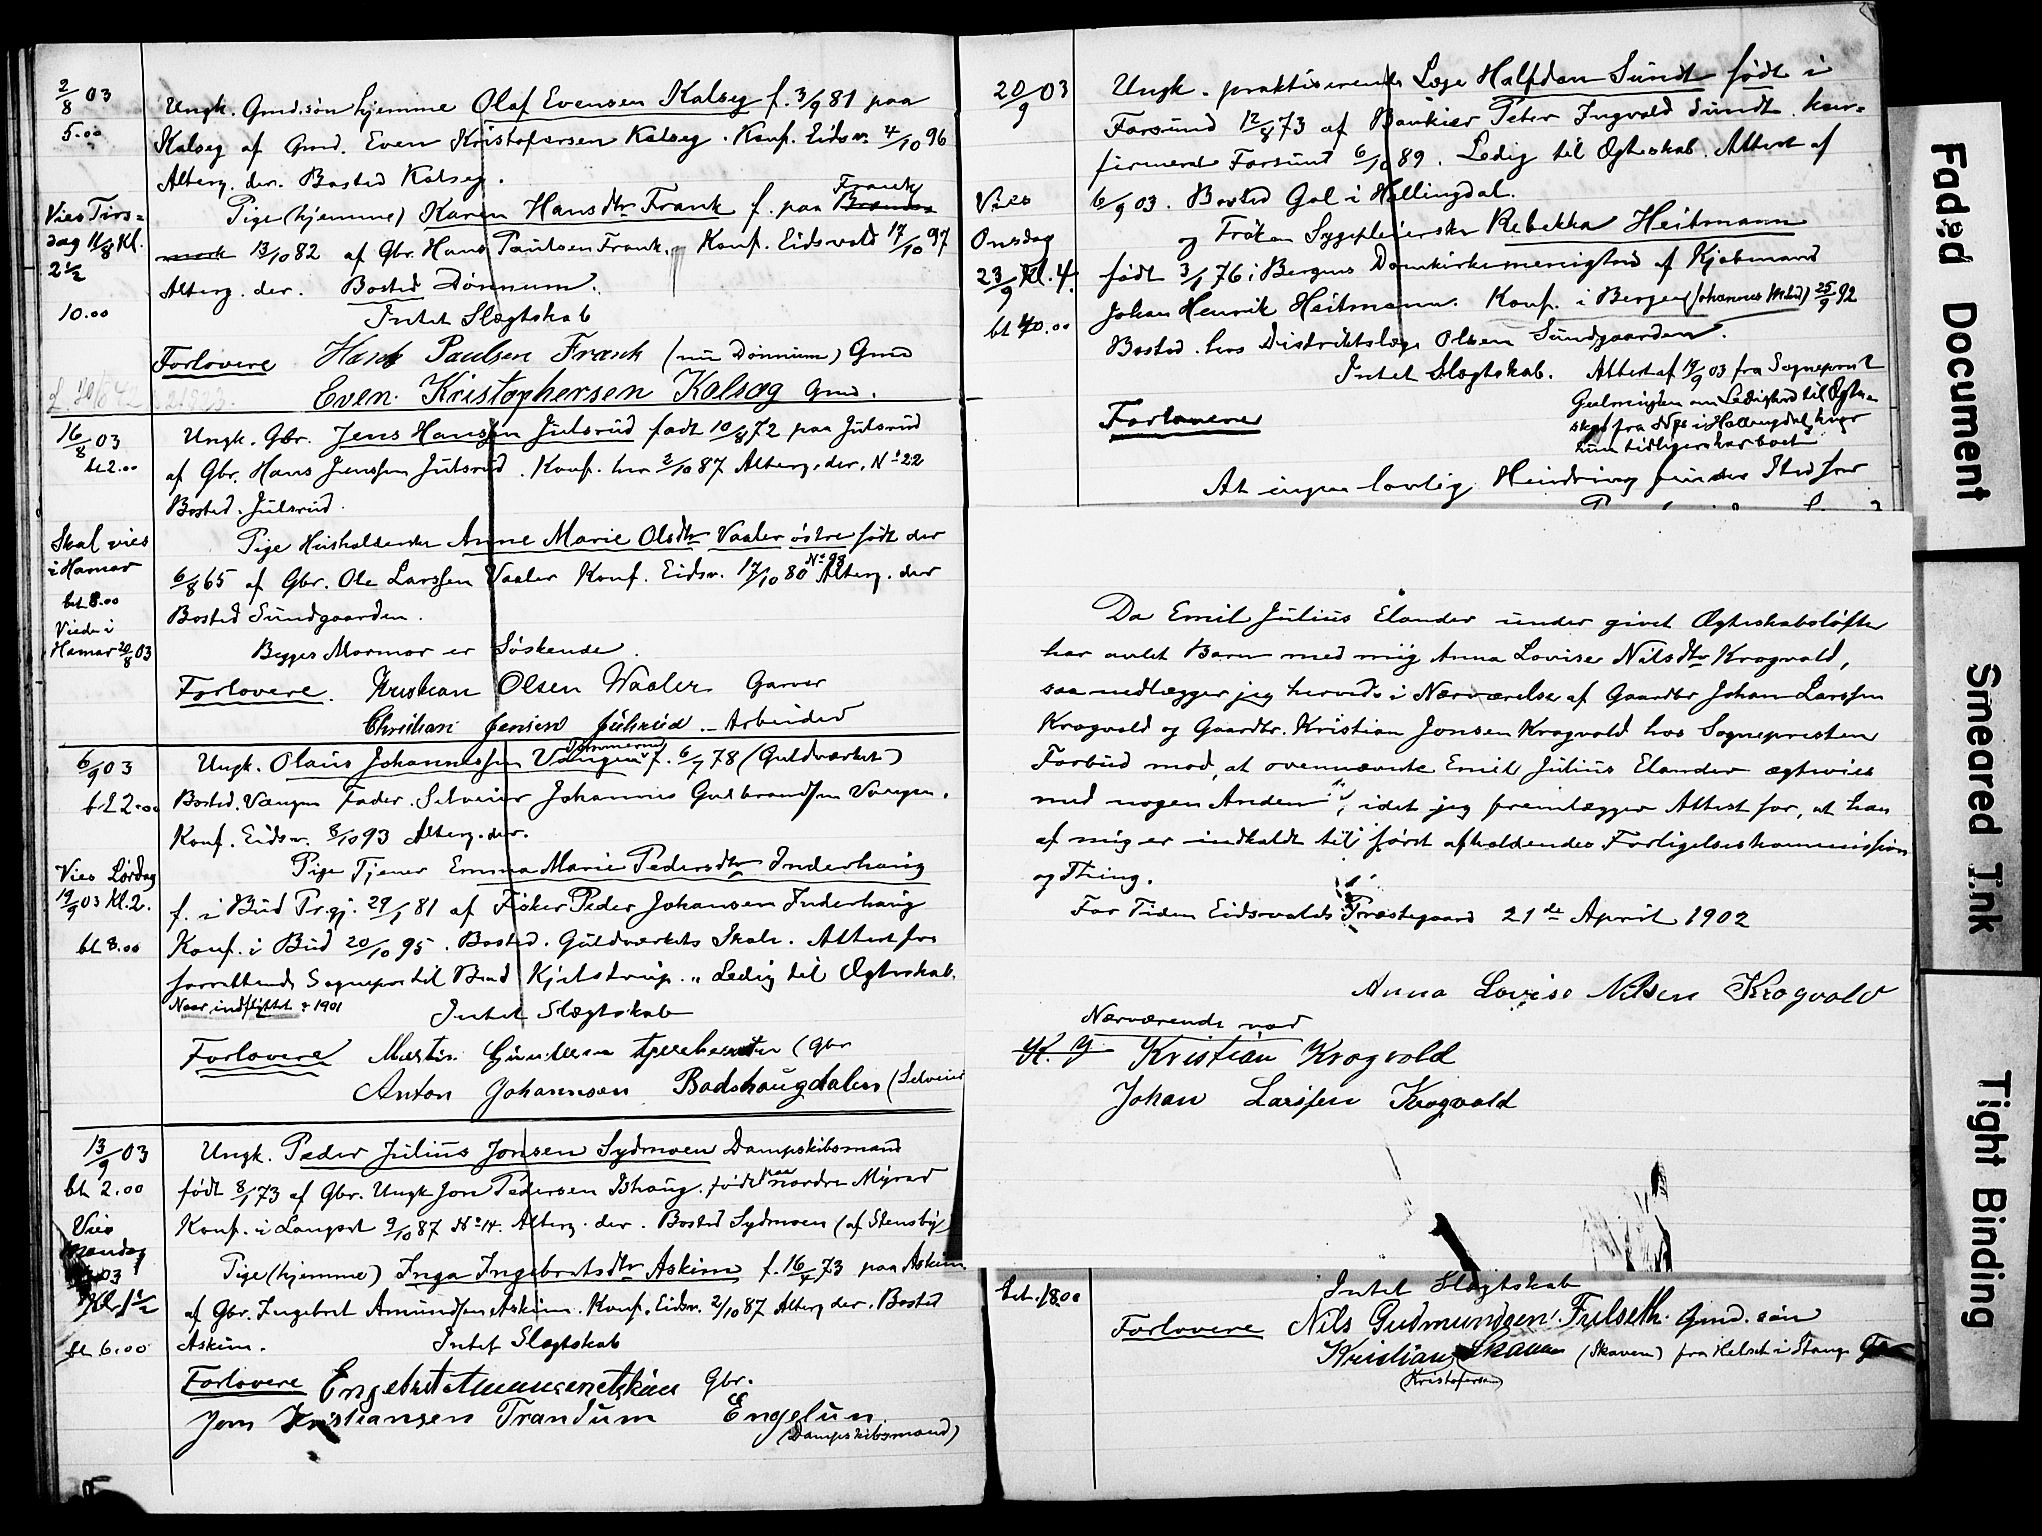 2/8 03
5.00
Ungk. Gmd.søn hjemme Olaf Evensen Kalseg f. 3/9 81 paa
Kalseg af Gmd. Even Kristofersen Kalseg. Konf. Eidsv. 4/10 96
Alterg. der. Bosted Kalseg.
Vies Tirs=
dag 11/8 Kl.
2 1/2
10.00
Pige (hjemme) Karen Hansdtr Frank f. paa Frank
13/10 82 af Gbr. Hans Paulsen Frank. Konf. Eidsvold 17/10 97
Alterg. der. Bosted Dønnum.
Intet Slægtskab
Forlovere Hans Paulsen Frank (nu Dønnum) Gmd
Even Kristophersen Kalsæg Gmd.
16/8 03
bt 2.00
Ungk. Gbr. Jens Hanssen Julsrud født 10/8 72 paa Julsrud
af Gbr. Hans Jenssen Julsrud. Konf. her 2/10 87 Alterg. der. No 22
Bosted. Julsrud.
Skal vies
i Hamar
bet 8.00
Viede i
Hamar 20/8 03
Pige Husholderske Anne Marie Olsdtr Vaaler østre født der
6/8 65 af Gbr. Ole Larssen Vaaler Konf. Eidsv. 17/10 80 No 98 Alterg. der
Bosted Sundgaarden.
Begges Mormor er Søskende.
Forlovere. Kristian Olsen Waaler Garver
Christian Jensen Julsrud - Arbeider
6/9 03
bt 2.00
Ungk. Olaus Johannessen Vangen Tømmermd f. 6/7 78 (Guldværket)
Bosted. Vangen Fader. Selveier Johannes Gulbrandsen Vangen.
Konf. Eidsv. 8/10 93 Alterg. der.
Vies Lørdag
19/9 03 Kl. 2.
bt 8.00
Pige Tjener Emma Marie Pedersdtr Inderhaug
f. i Bud Prgj. 29/1 81 af Fisker Peder Johansen Inderhaug
Konf. i Bud 20/10 95. Bosted. Guldværkets Skole. Attest fra
forrettende Sogneprest til Bud Kjelstrup. „ Ledig til Ægteskab.
Naar indflyttet: 1901
Intet Slægtskab
Forlovere Martin (Gbr
Anton Johannsen Badshaugdalen (Selveier
13/9 03
bt 2.00
Ungk. Peder Julius Jonsen Sydmoen Dampskibsmand
født 8/1 73 af Gbr. Ungk Jon Pedersen Ishaug. født paa nordre Myrer
Konf. i Langset 9/10 87 No 14. Alterg. der. Bosted Sydmoen (af Stensby)
Vies
Mandag
03
Kl. 1 1/2
bt 6.00
Pige (hjemme) Inga Ingebretsdtr Askim f. 16/4 73 paa Askim
af Gbr. Ingebret Amundsen Askim. Konf. Eidsv. 2/10 87 Alterg der. Bosted
Askim. Intet Slægtskab
Forlovere Engebret Amunsen Askim Gbr.
Jens Kristiansen Trandum Engelun.
(Dampskibsmand)
20/9 03
Ungk. praktiserende Læge Halfdan Sundt født i
Farsund 12/8 73 af Bankier Peter Ingvald Sundt. kon=
firmeret Farsund 6/10 89. Ledig til Ægteskab. Attest af
6/9 03. Bosted Gol i Hallingdal.
Vies
Onsdag
23/9 Kl. 4.
bt 40.00
og Frøken Sygepleierske Rebekka Heitmann
født 3/1 76 i Bergens Domkirkemenighed af Kjøbmand
Johan Henrik Heitmann. Konf. i Bergen (Johannes Mehd) 25/9 92
Bosted. hos Distriktslæge Olsen Sundgaarden.
Intet Slægtskab. Attest af 19/9 03 fra Sogneprest
om Ledighed til Ægte=
skab fra Næs i Hallingdal, hvor
hun tidligere har boet
Forlovere
At ingen lovlig Hindring finder Sted for
Da Emil Julius Elander under givet Ægteskabsløfte
har avlet Barn med mig Anna Lovise Nilsdtr Krogvold,
saa nedlægger jeg herved i Nærværelse af Gaardbr Johan Larssen
Krogvold og Gaardbr. Kristian Jonsen Krogvold hos Sognepresten
Forbud mod, at ovennævnte Emil Julius Elander ægtevies
med nogen Anden, idet jeg fremlægger Attest for, at han
af mig er indkaldt til først afholdendes Forligelseskommission
og Thing.
For Tiden Eidsvolds Præstegaard 21de April 1902
Anna Lovise Nilsen Krogvold
Nærværende ved
K. J. Kristian Krogvold
Johan Larssen Krogvold
bet. 18.00
Intet Slægtskab
Forlovere Nils Gudmundsen Fulseth. Gmd. søn
Kristian Skaven (Skaven) fra Helset i Stange
(Kristofersen)
Faded Document
Smeared Ink
Tight Binding